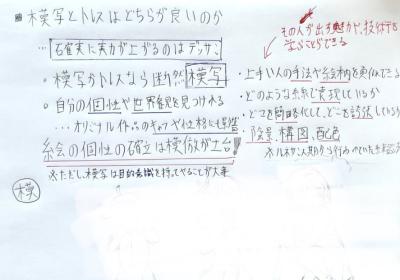 模写とトレスはどちらが良いのか
…確実に実力が上がるのはデッサン
・模写かトレスなら断然模写
・自分の個性や世界観を見つけれる
…オリジナル作品のキャラや性格にも影響
絵の個性の確立は模倣が土台!
※ただし、模写は目的意識を持ってやることが大事
模
その人が出す魅力や、技術力を
学ぶことができる
・上手い人の手法や絵柄を真似できる
・どのような線で表現しているか
・どこを簡略化して、どこを誇張しているか
・背景、構図、配色
※ルネサンス期から行われていた